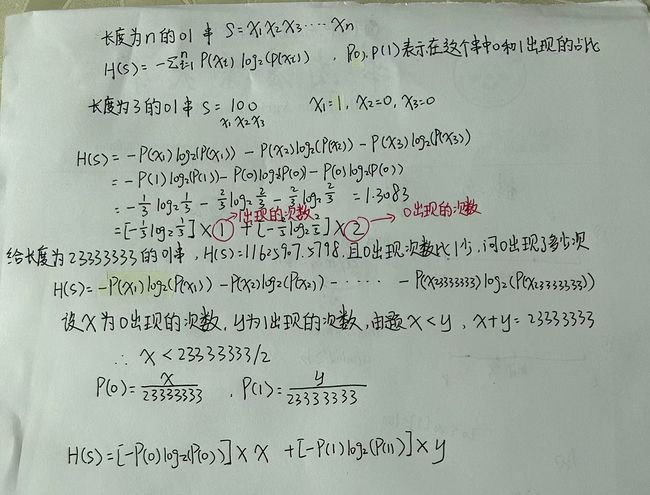 长度为n的01串 S=x₁x₂x₃····xₙ
H(S)=-∑ⁿᵢ₌₁ P(xᵢ)log₂(P(xᵢ)) , P(0),P(1)表示在这个串中0和1出现的占比
长度为3的01串 S=100 x₁=1, x₂=0, x₃=0
x₁x₂x₃
H(S)=-P(x₁)log₂(P(x₁))-P(x₂)log₂(P(x₂))-P(x₃)log₂(P(x₃))
=-P(1)log₂(P(1))-P(0)log₂(P(0))-P(0)log₂(P(0))
=-1/3log₂1/3-2/3log₂2/3-2/3log₂2/3=1.3083
=[-1/3log₂1/3]×1+[-2/3log₂2/3]×2
1出现的次数
0出现的次数
给长度为23333333的01串,H(S)=11625907.5798,且0出现次数比1少,问0出现了多少次
H(S)=-P(x₁)log₂(P(x₁))-P(x₂)log₂(P(x₂))-·····-P(x₂₃₃₃₃₃₃₃)log₂(P(x₂₃₃₃₃₃₃₃))
设x为0出现的次数,y为1出现的次数,由题x<y,x+y=23333333
∴x<23333333/2
P(0)=x/23333333 ,P(1)=y/23333333
H(S)=[-P(0)log₂(P(0))]×x+[-P(1)log₂(P(1))]×y